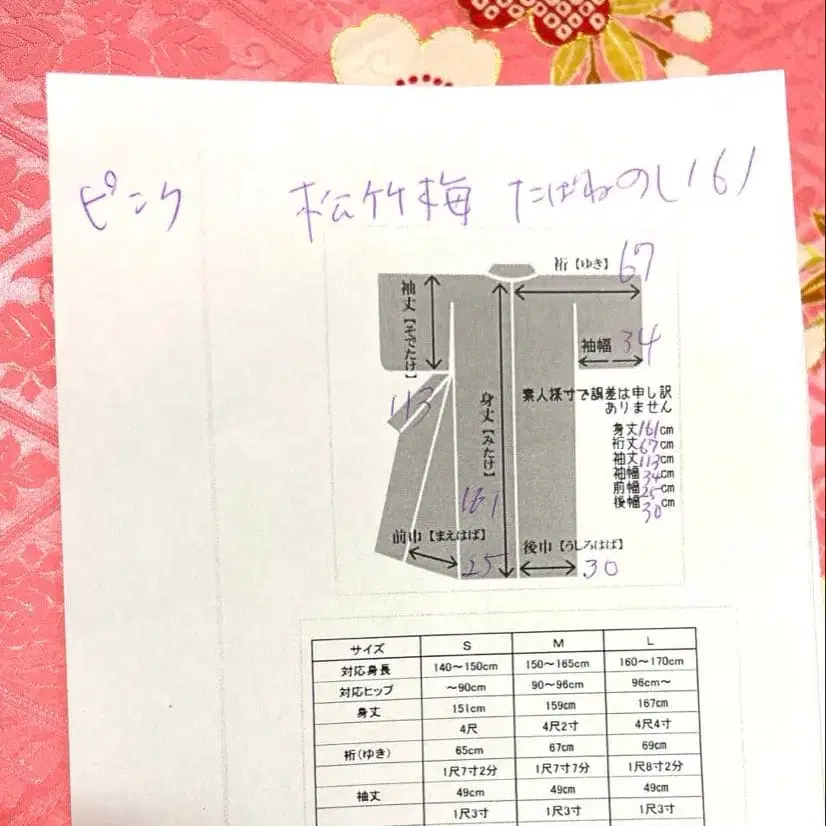 ピンク 松竹梅 たばねのし 161
裄【ゆき】 67
袖丈【そでたけ】
113
袖幅 34
素人採寸で誤差は申し訳
ありません
身丈161cm
裄丈67cm
袖丈113cm
袖幅34cm
前幅25cm
後幅30cm
身丈【みたけ】
161
前巾【まえはば】
25
後巾【うしろはば】
30
サイズ S M L
対応身長 140～150cm 150～165cm 160～170cm
対応ヒップ ～90cm 90～96cm 96cm～
身丈 151cm 159cm 167cm
4尺 4尺2寸 4尺4寸
裄(ゆき) 65cm 67cm 69cm
1尺7寸2分 1尺7寸7分 1尺8寸2分
袖丈 49cm 49cm 49cm
1尺3寸 1尺3寸 1尺3寸